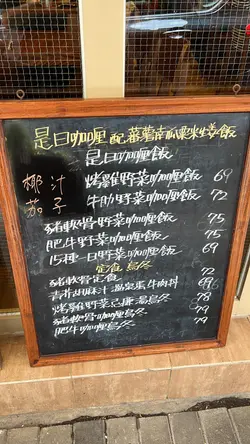 是日咖喱配蕃薯南瓜粟米生菜飯
是日咖喱飯
椰汁
茄子
烤雞野菜咖喱飯 69
牛肋野菜咖喱飯 72
豬軟骨野菜咖喱飯 75
肥牛野菜咖喱飯 75
15種一日野菜咖喱飯 69
定食 烏冬
豬軟骨定食 72
胡麻汁溫泉蛋牛肉
烤雞野菜湯烏冬 78
豬軟骨咖喱烏冬 79
肥牛咖喱烏冬 79